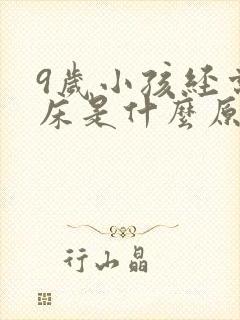 9歲小孩經常
床是什麼原
行山晶